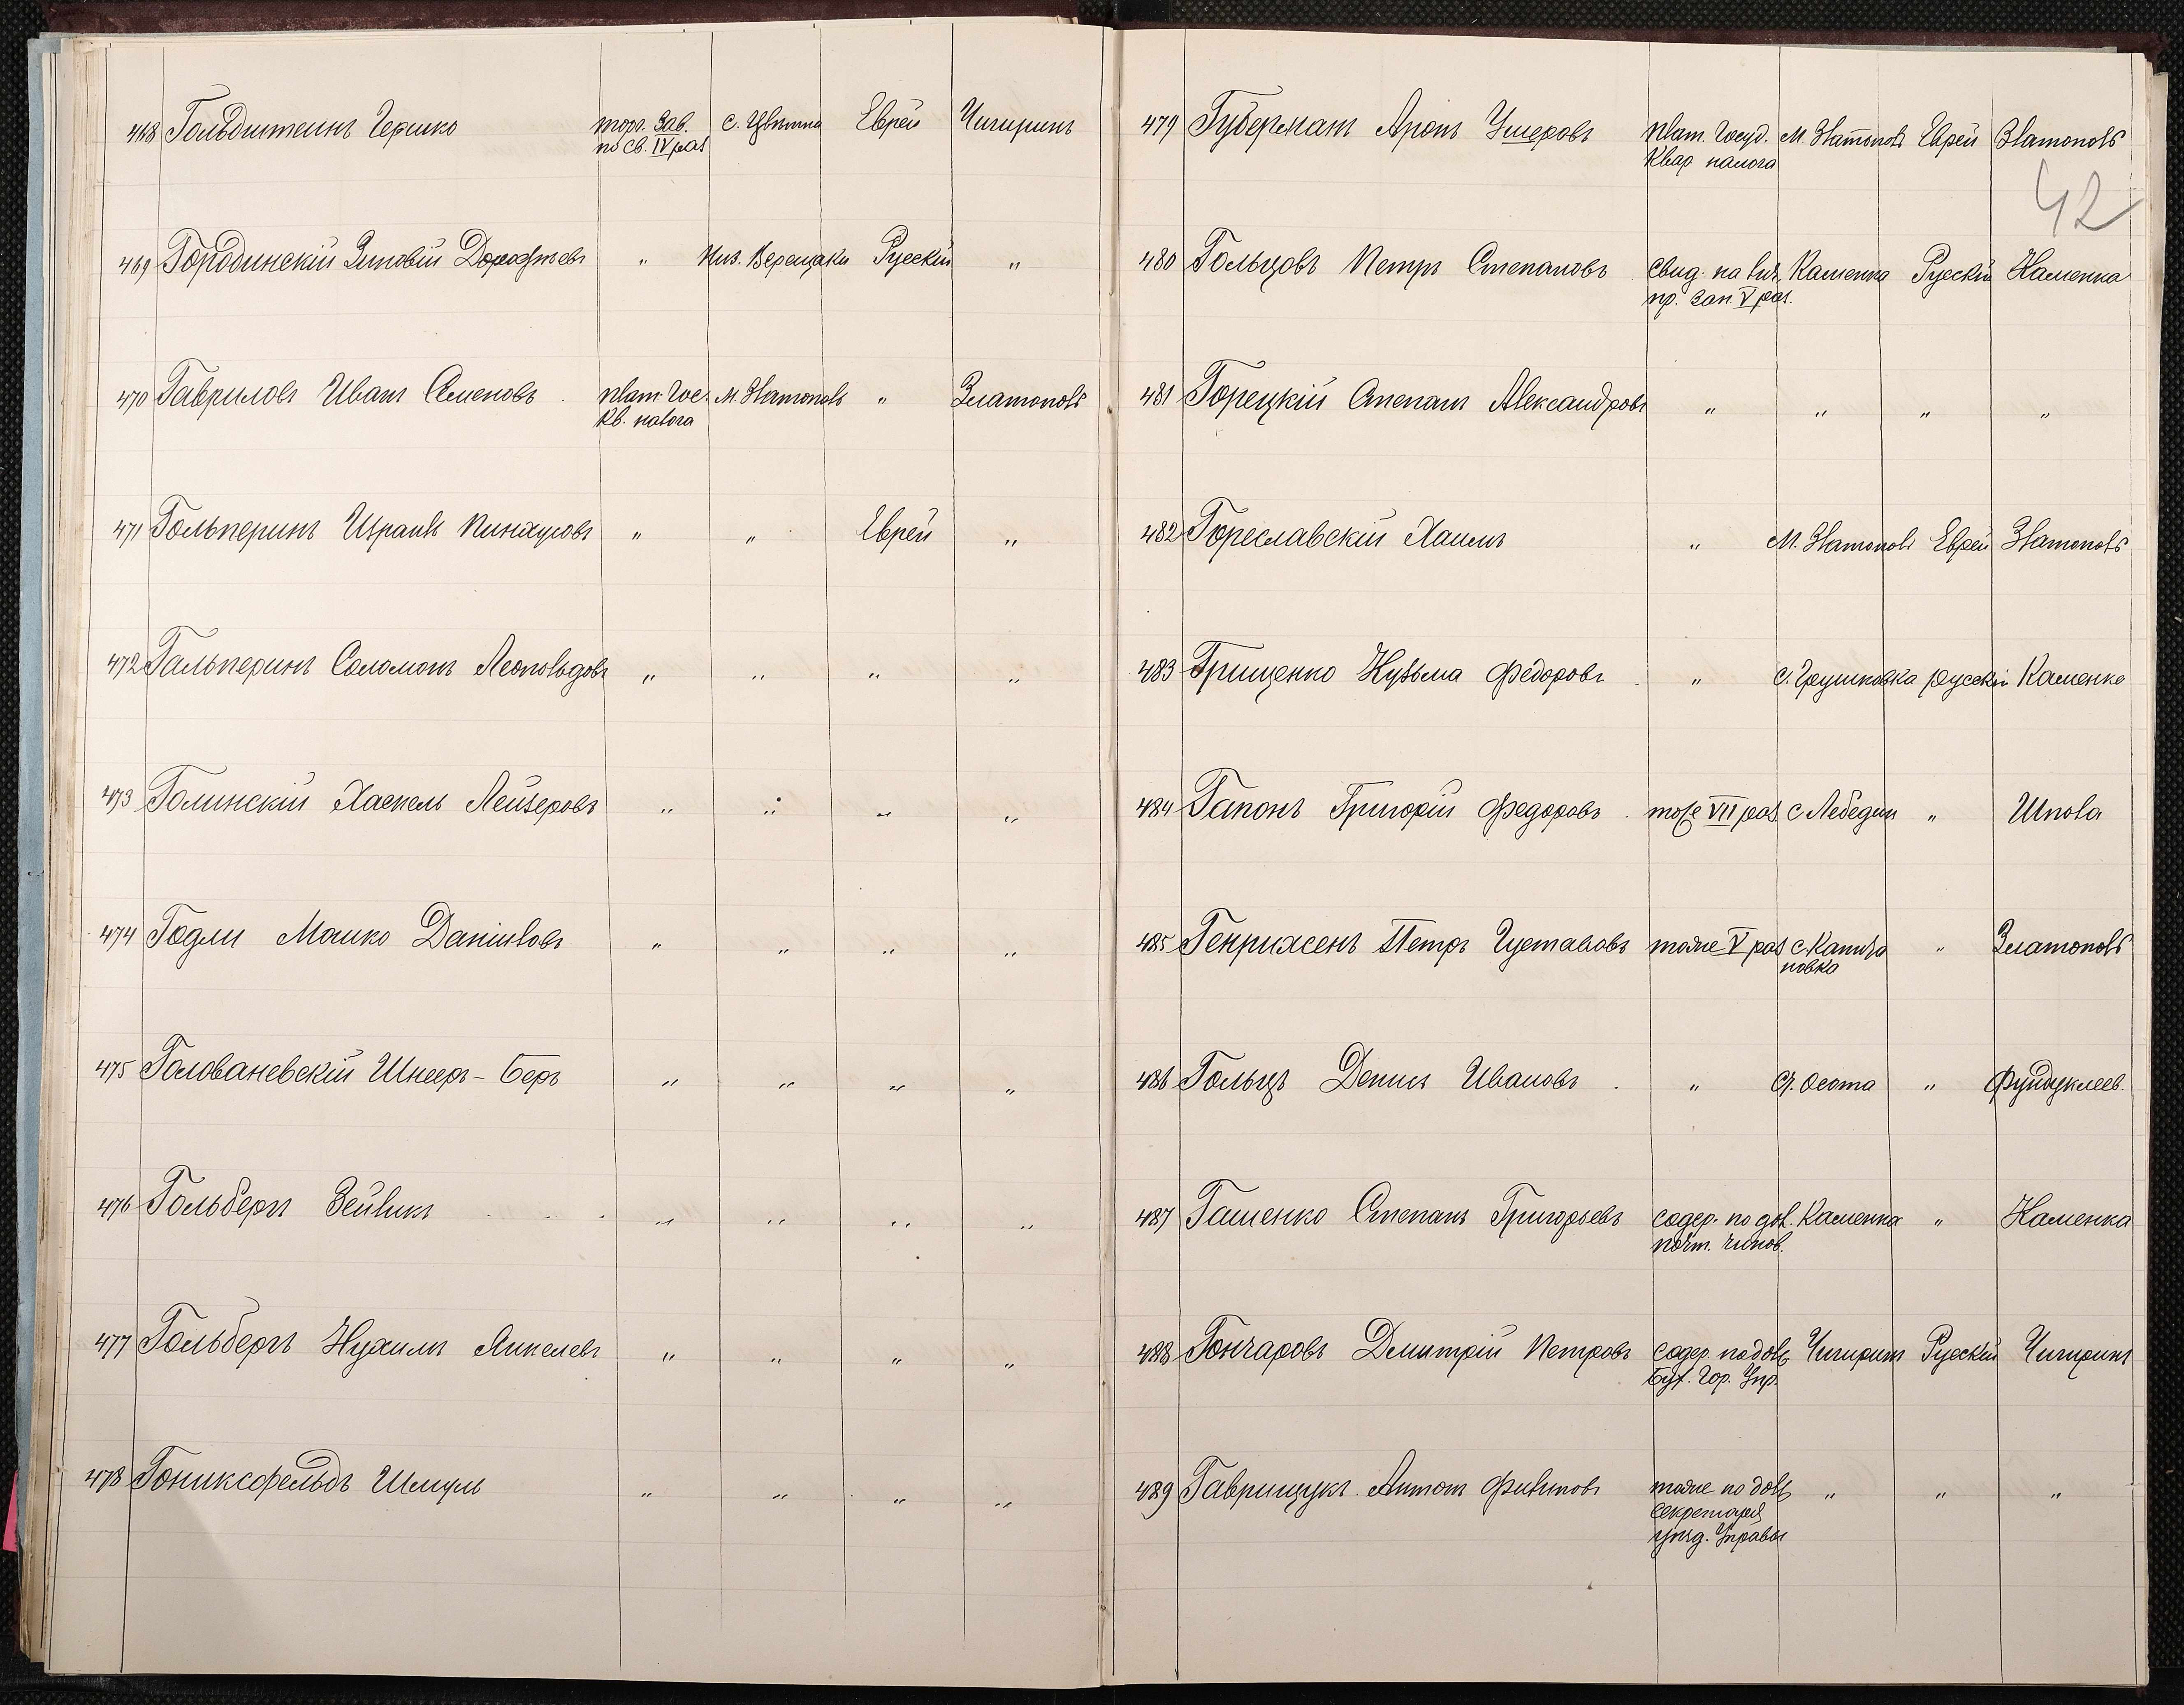 468 Гольдштейнъ Гершко торг. Зав. с. Цвѣтна Еврей Чигиринъ
по св. IV раз
469 Городинскій Зиновій Дорофѣевъ " Ниж. Верещаки Русскій "
470 Гавриловъ Иванъ Семеновъ плат. Гос. М. Златополь " Златополь
кв. налога
471 Гольперинъ Израиль Пинхусовъ " " Еврей "
472 Гальперинъ Соломонъ Леопольдовъ " " " "
473 Голинскій Хаскель Лейзеровъ " " " "
474 Годли Мошко Даніиловъ " " " "
475 Голованевскій Шнееръ-Беръ " " " "
476 Гольберг Зейликъ " " " "
477 Гольбергъ Нухимъ Янкелевъ " " " "
478 Гониксфельдъ Шмуль " " " "
42
479 Губерманъ Аронъ Ушеровъ плат. Госуд. М. Златополь Еврей Златополь
Квар налога
480 Гольцовъ Петръ Степановъ свид. на Каменка Русскій Каменка
пр. зан. V раз.
481 Горецкій Степанъ Александровъ " " " "
482 Гореславскій Хаимъ " М. Златополь Еврей Златополь
483 Грищенко Кузьма Федоровъ " с. Грушковка русскій Каменка
484 Гапонъ Григорій Федоровъ тоже VII раз с Лебединъ " Шпола
485 Генрихсенъ Петръ Густавовъ тоже V раз с. " Златополь
новка
486 Гольцъ Денисъ Ивановъ " с. Осота " Фундуклеев.
487 Гашенко Степанъ Григорьевъ содер. по дол. Каменка " Каменка
почт. чинов.
488 Гончаровъ Дмитрій Петровъ содер. по долж Чигиринъ Русскій Чигиринъ
Бух. Гор. Упр.
489 Гаврищукъ Антонъ Филиповъ тоже по долж " " "
секретаря
уѣзд. Управы